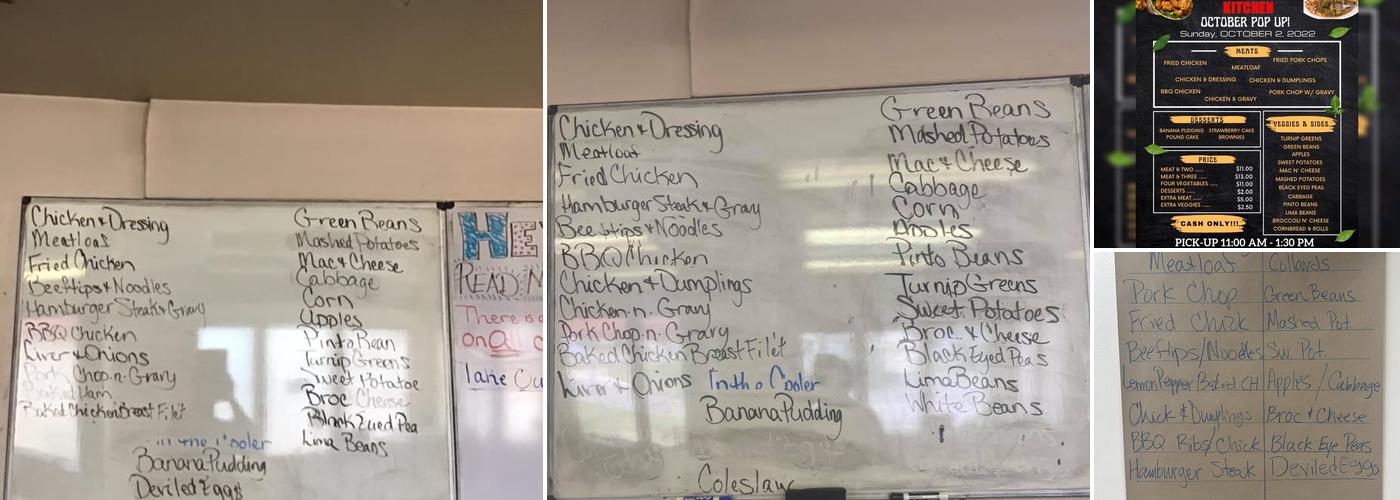 Chicken & Dressing
Meatloaf
Fried Chicken
Beeftips & Noodles
Hamburger Steak & Gravy
BBQ Chicken
Liver & Onions
Pork Chop-n-Gravy
Baked Ham
Baked Chicken Breast Filet
Green Beans
Mashed Potatoes
Mac & Cheese
Cabbage
Corn
Apples
Pinto Bean
Turnip Greens
Sweet Potatoe
Broc Cheese
Black Eyed Pea
Lima Beans
in the Cooler
Banana Pudding
Deviled Eggs
READ
There is
on
Take
Chicken & Dressing
Meatloaf
Fried Chicken
Hamburger Steak & Gravy
Beeftips & Noodles
BBQ Chicken
Chicken & Dumplings
Chicken-n-Gravy
Pork Chop-n-Gravy
Baked Chicken Breast Filet
Liver & Onions
In the Cooler
Banana Pudding
Coleslaw
Green Beans
Mashed Potatoes
Mac & Cheese
Cabbage
Corn
Apples
Pinto Beans
Turnip Greens
Sweet Potatoes
Broc. & Cheese
Black Eyed Peas
Lima Beans
White Beans
KITCHEN
OCTOBER POP UP!
Sunday, OCTOBER 2, 2022
MEATS
FRIED CHICKEN
MEATLOAF
FRIED PORK CHOPS
CHICKEN & DRESSING
CHICKEN & DUMPLINGS
BBQ CHICKEN
CHICKEN & GRAVY
PORK CHOP W/ GRAVY
DESSERTS
BANANA PUDDING STRAWBERRY CAKE
POUND CAKE BROWNIES
PRICE
MEAT & TWO ...... $11.00
MEAT & THREE ...... $13.00
FOUR VEGETABLES ...... $11.00
DESSERTS ...... $2.00
EXTRA MEAT ...... $5.00
EXTRA VEGGIES ...... $2.50
CASH ONLY!!!
VEGGIES & SIDES
TURNIP GREENS
GREEN BEANS
APPLES
SWEET POTATOES
MAC N' CHEESE
MASHED POTATOES
BLACK EYED PEAS
CABBAGE
PINTO BEANS
LIMA BEANS
BROCCOLI N' CHEESE
CORNBREAD & ROLLS
PICK-UP 11:00 AM - 1:30 PM
Meatloaf Collards
Pork Chop Green Beans
Fried Chick Mashed Pot.
Beeftips/Noodles Sw. Pot.
Lemon Pepper Baked CH Apples/Cabbage
Chick & Dumplings Broc & Cheese
BBQ Ribs/Chick Black Eye Peas
Hamburger Steak Deviled Eggs